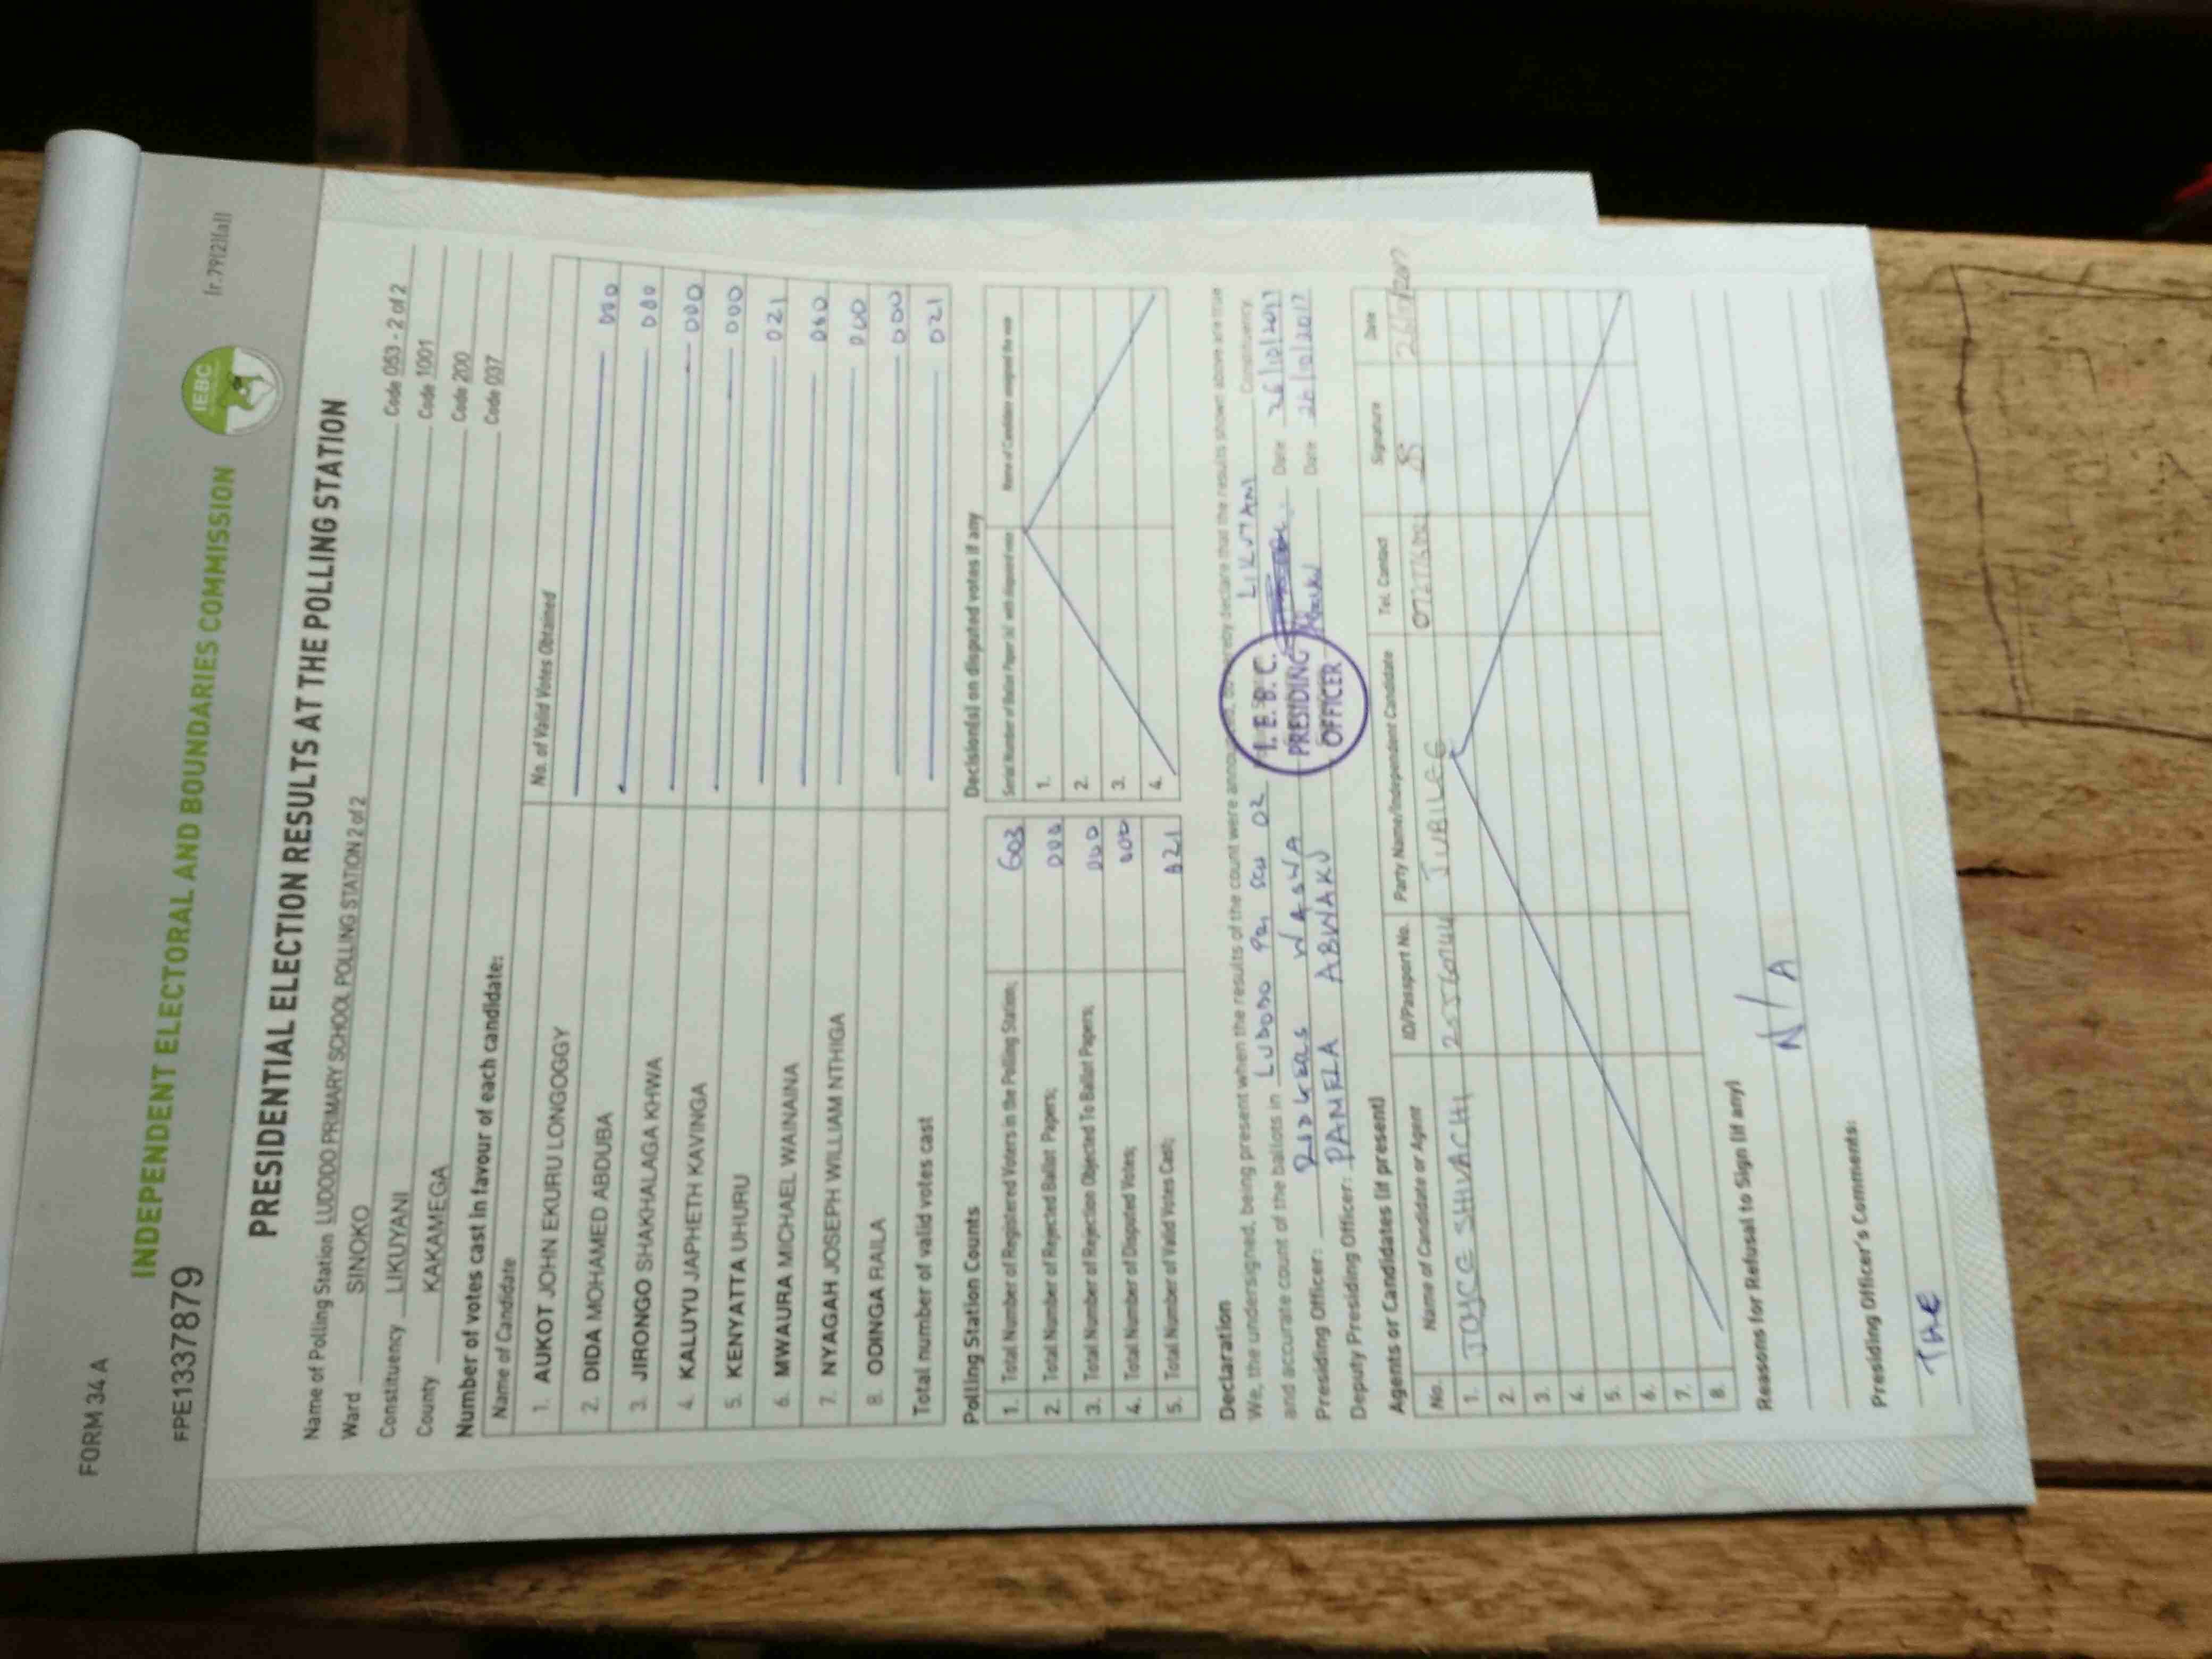 FORM 34 A
(r.79(2)(a))
INDEPENDENT ELECTORAL AND BOUNDARIES COMMISSION
IEBC
FPE1337879
PRESIDENTIAL ELECTION RESULTS AT THE POLLING STATION
Name of Polling Station LUDODO PRIMARY SCHOOL POLLING STATION 2 of 2 Code 053 - 2 of 2
Ward SINOKO Code 1001
Constituency LIKUYANI Code 200
County KAKAMEGA Code 037
Number of votes cast in favour of each candidate:
Name of Candidate No. of Valid Votes Obtained
1. AUKOT JOHN EKURU LONGOGGY 000
2. DIDA MOHAMED ABDUBA 000
3. JIRONGO SHAKHALAGA KHWA 000
4. KALUYU JAPHETH KAVINGA 000
5. KENYATTA UHURU 021
6. MWAURA MICHAEL WAINAINA 000
7. NYAGAH JOSEPH WILLIAM NTHIGA 000
8. ODINGA RAILA 000
Total number of valid votes cast 021
Polling Station Counts
1. Total Number of Registered Voters in the Polling Station; 603
2. Total Number of Rejected Ballot Papers; 000
3. Total Number of Rejection Objected To Ballot Papers; 000
4. Total Number of Disputed Votes; 000
5. Total Number of Valid Votes Cast; 021
Decision(s) on disputed votes if any
Serial Number of Ballot Paper (s) with disputed vote Name of Candidate assigned the vote
1.
2.
3.
4.
Declaration
We, the undersigned, being present when the results of the count were announced, do hereby declare that the results shown above are true
and accurate count of the ballots in LUDODO Pri SCH 02 LIKUYANI Constituency.
Presiding Officer: Date 26/10/2017
Deputy Presiding Officer: PAMELA Date 26/10/2017
I.E.B.C.
PRESIDING
OFFICER
Agents or Candidates (if present)
No. Name of Candidate or Agent ID/Passport No. Party Name/Independent Candidate Tel. Contact Signature Date
1. JOYCE SHIVACHI JUBILEE
2.
3.
4.
5.
6.
7.
8.
Reasons for Refusal to Sign (if any)
N/A
Presiding Officer's Comments:
THE